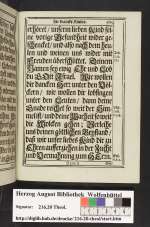 erhöret / unserm lieben Kind sei-
ne vorige Gesundheit wider ge-
schencket / und also nach dem heu-
len und weinen uns wider mit
Freuden überschüttet. Deinem
Namen sey ewig Ehr und Lob
du GOtt Israel. Wir wollen
dir dancken Herr unter den Völ-
ckern / wir wollen dir lobsingen
unter den Leuten / dann deine
Gnade reichet so weit der Him-
mel ist / und deine Warheit so weit
die Wolcken gehen; Verleihe
uns deinen göttlichen Beystand /
daß wir unser liebes Kind dir zu
Ehren aufferziehen in der Zucht
und Vermahnung zum HErrn.
Herzog August Bibliothek Wolfenbüttel
Signatur: 216.20 Theol.
http://diglib.hab.de/drucke/216-20-theol/start.htm